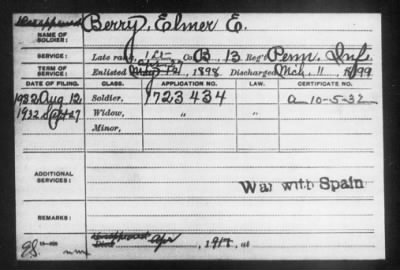 Berry, Elmer E.
NAME OF SOLDIER:
SERVICE: Late rank, Co. B, 13 Reg't Penn. Inf.
TERM OF SERVICE: Enlisted 1898, Discharged Mch. 11, 1899
DATE OF FILING. CLASS. APPLICATION NO. LAW. CERTIFICATE NO.
1932 Aug 12 Soldier, 1723434 a 10-5-32
1932 27 Widow, " "
Minor,
ADDITIONAL SERVICES: War with Spain
REMARKS:
1917, at